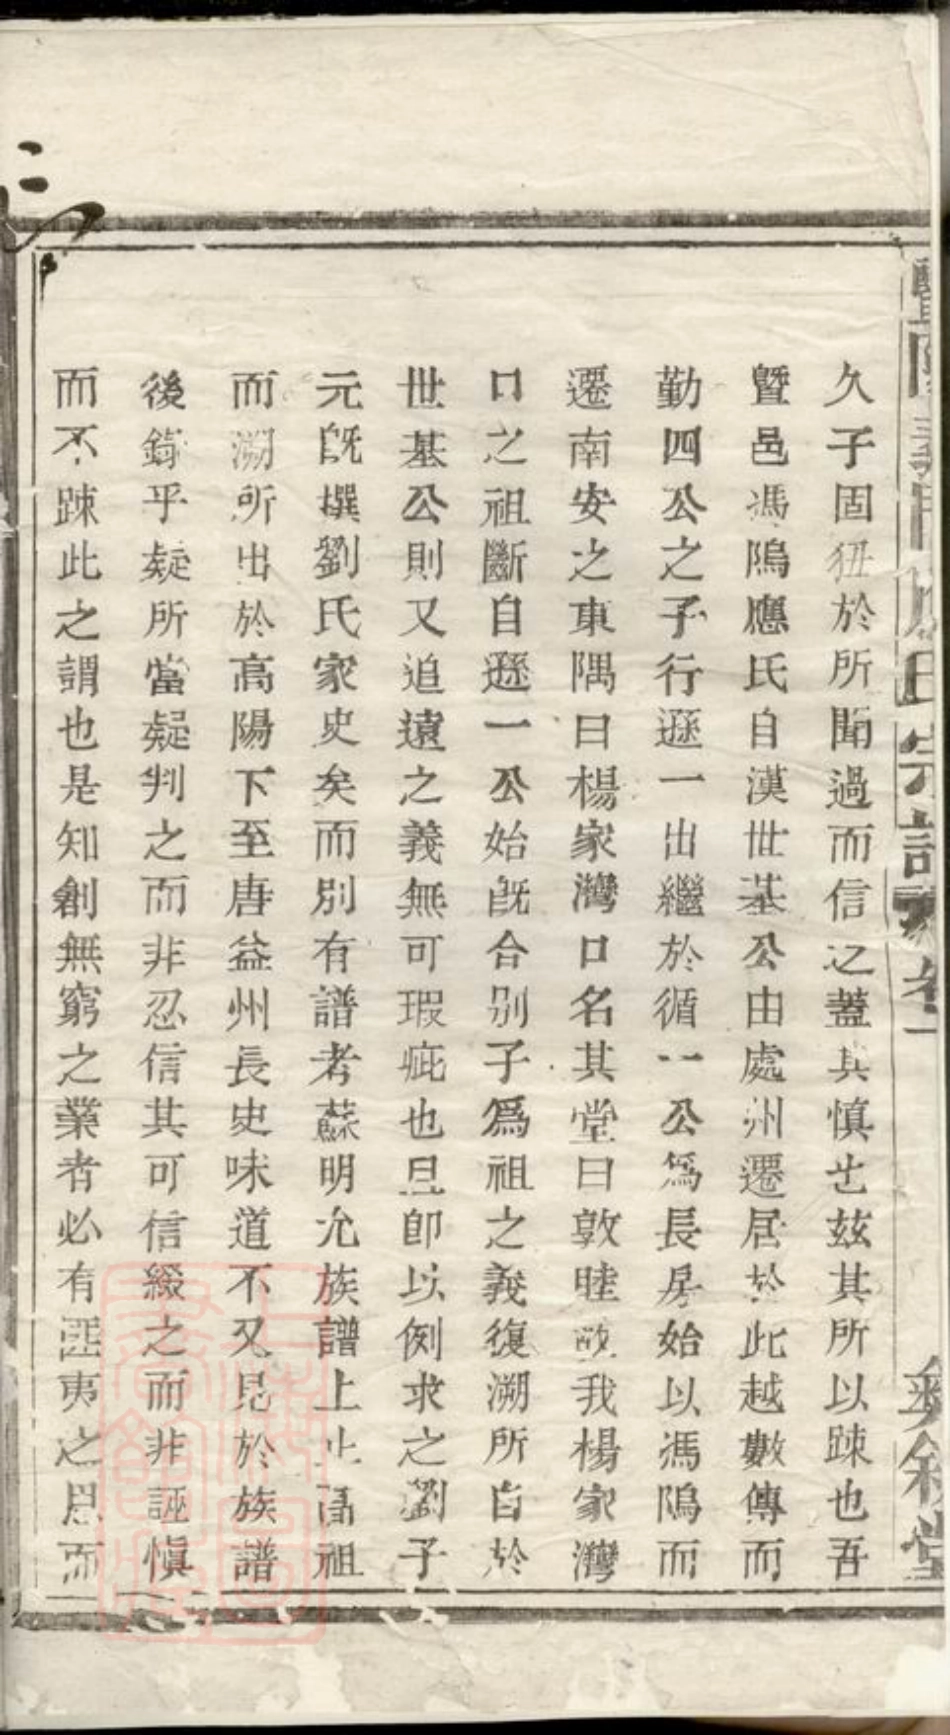 久子固狃於所聞過而信之蓋其慎也茲其所以踈也吾
暨邑馮隝應氏自漢世基公由處州遷居於此越數傳而
勤四公之子行遜一出繼於循一公爲長房始以馮隝而
遷南安之東隅曰楊家灣口名其堂曰敦睦故我楊家灣
口之祖斷自遜一公始旣合别子爲祖之義復溯所自於
世基公則又追遠之義無可瑕疵也且卽以例求之劉子
元旣撰劉氏家史矣而別有譜考蘇明允族譜上止高祖
而溯所出於高陽下至唐益州長史味道不又見於族譜
後錄乎疑所當疑判之而非忍信其可信綴之而非誣愼
而不踈此之謂也是知創無窮之業者必有匪夷之思而